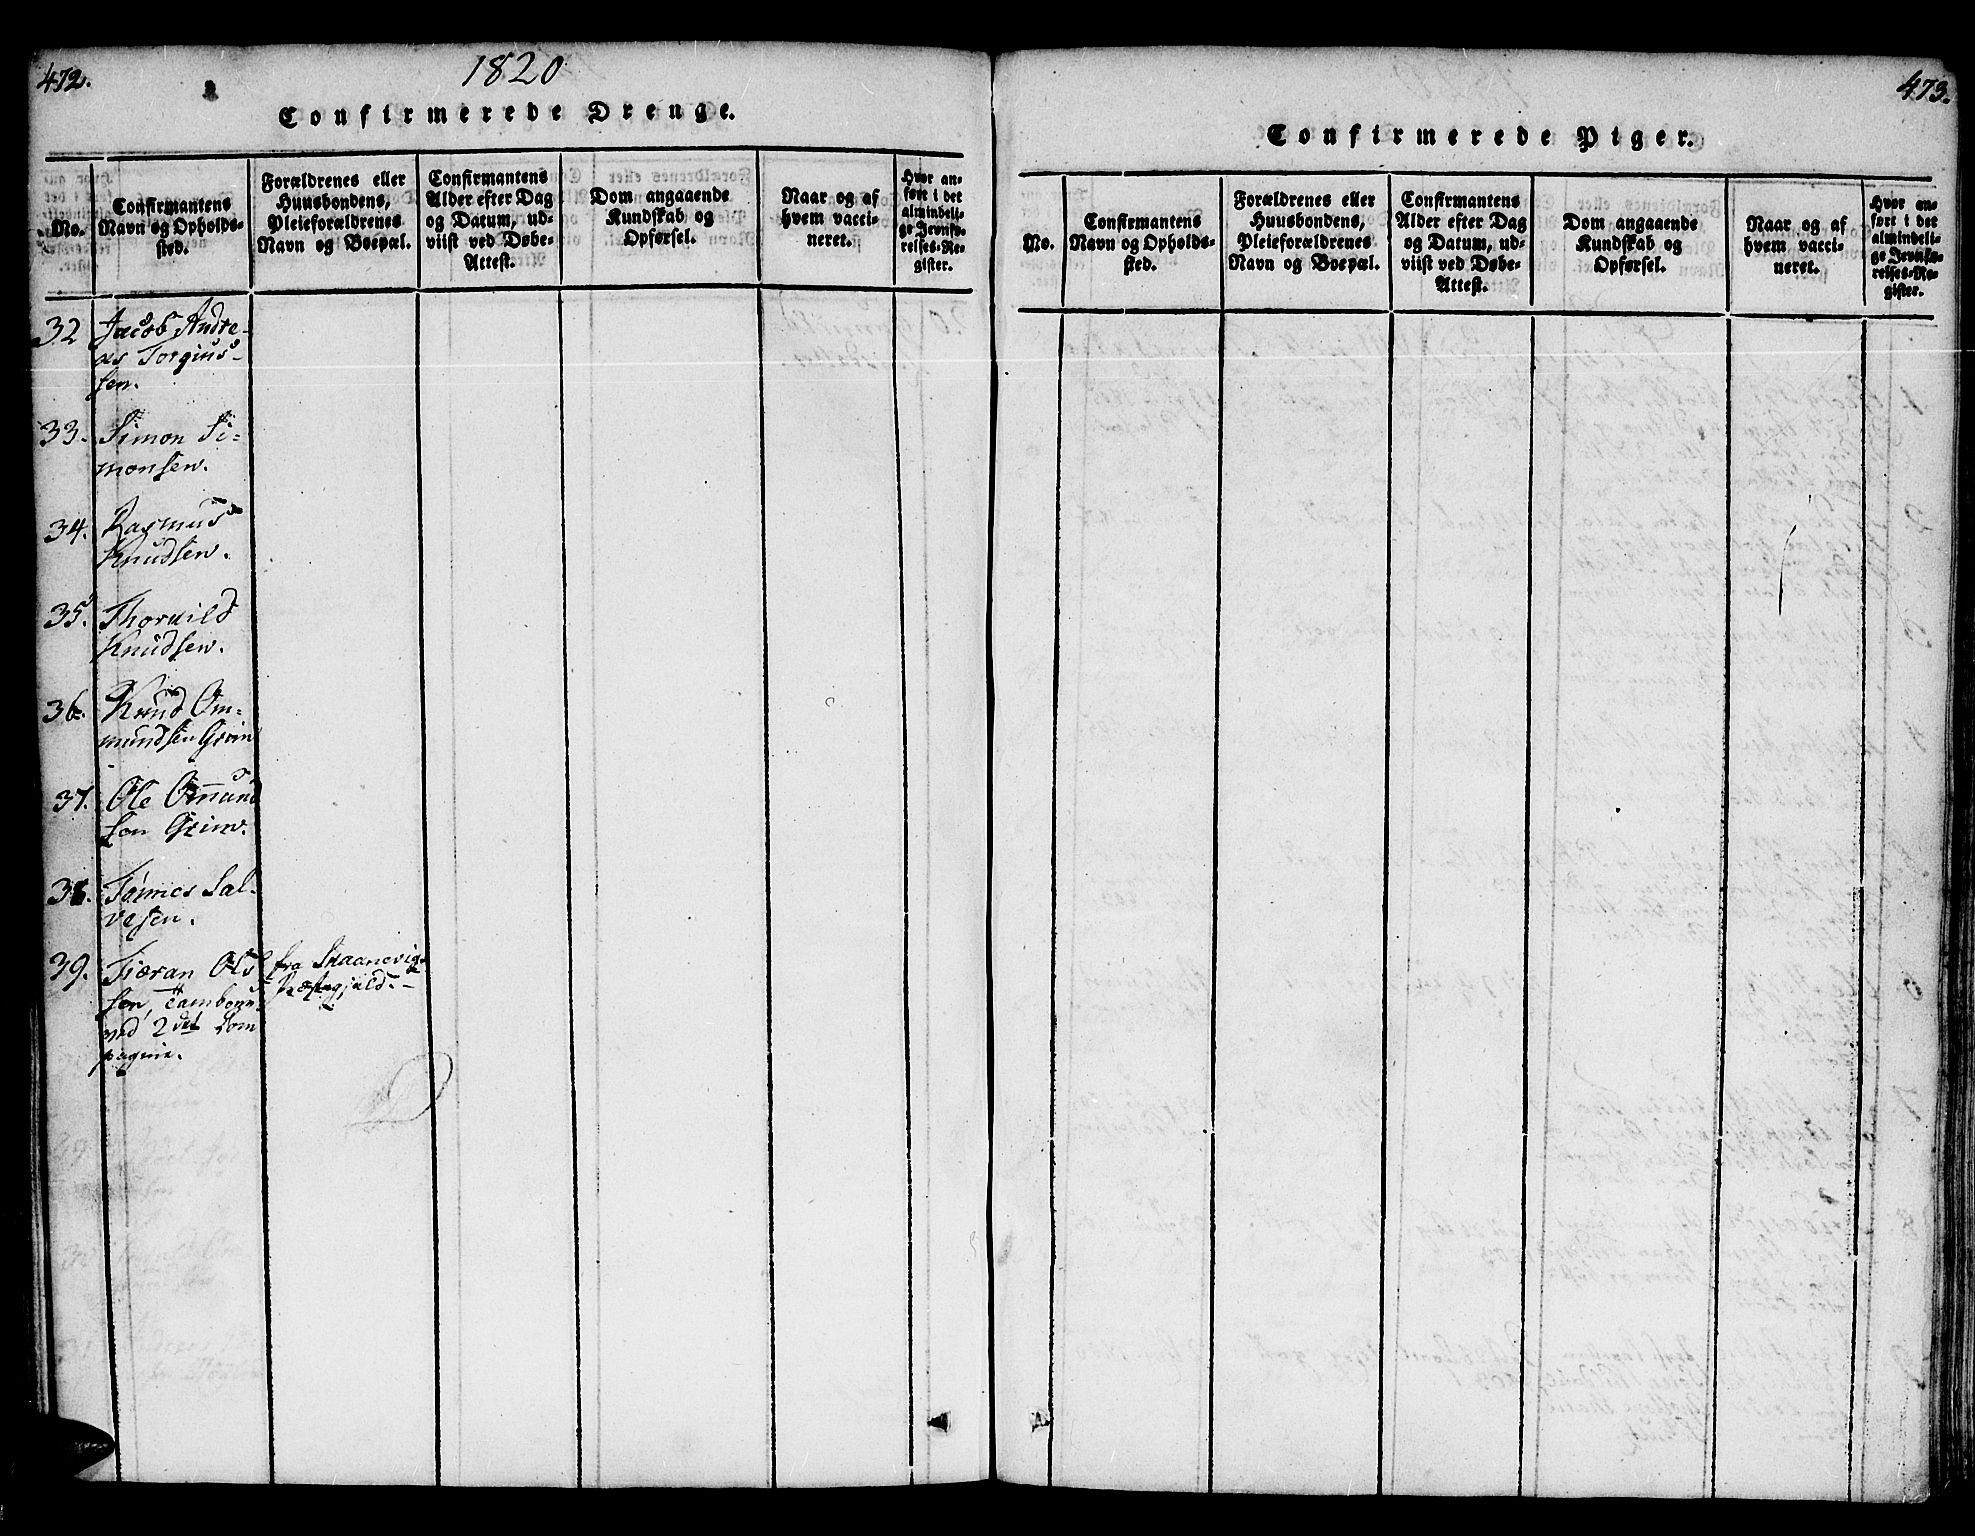 472.
1820
Confirmerede Drenge.
No.
Confirmantens
Navn og Opholds-
sted.
Forældrenes eller
Huusbondens,
Pleieforældrenes
Navn og Boepæl.
Confirmantens
Alder efter Dag
og Datum, ud-
viist ved Døbe-
Attest.
Dom angaaende
Kundskab og
Opførsel.
Naar og af
hvem vacci-
neret.
Hvor an-
ført i det
almindeli-
ge Jevnfø-
relses-Re-
gister.
32 Jacob Andre-
as Torgius-
sen.
33. Simon Si-
monsen.
34. Rasmus
Knudsen.
35. Thorvild
Knudsen.
36. Knud Om-
mundsen Grim
37. Ole Omund
sen Grim.
38. Tønnes Sal-
vesen.
39. Tieran Ols
sen, Tambour
ved 2det Com
pagnie.
fra Skaanevigs
Præstegjæld.
473.
Confirmerede Piger.
No.
Confirmantens
Navn og Opholds-
sted.
Forældrenes eller
Huusbondens,
Pleieforældrenes
Navn og Boepæl.
Confirmantens
Alder efter Dag
og Datum, ud-
viist ved Døbe-
Attest.
Dom angaaende
Kundskab og
Opførsel.
Naar og af
hvem vacci-
neret.
Hvor an-
ført i det
almindeli-
ge Jevnfø-
relses-Re-
gister.